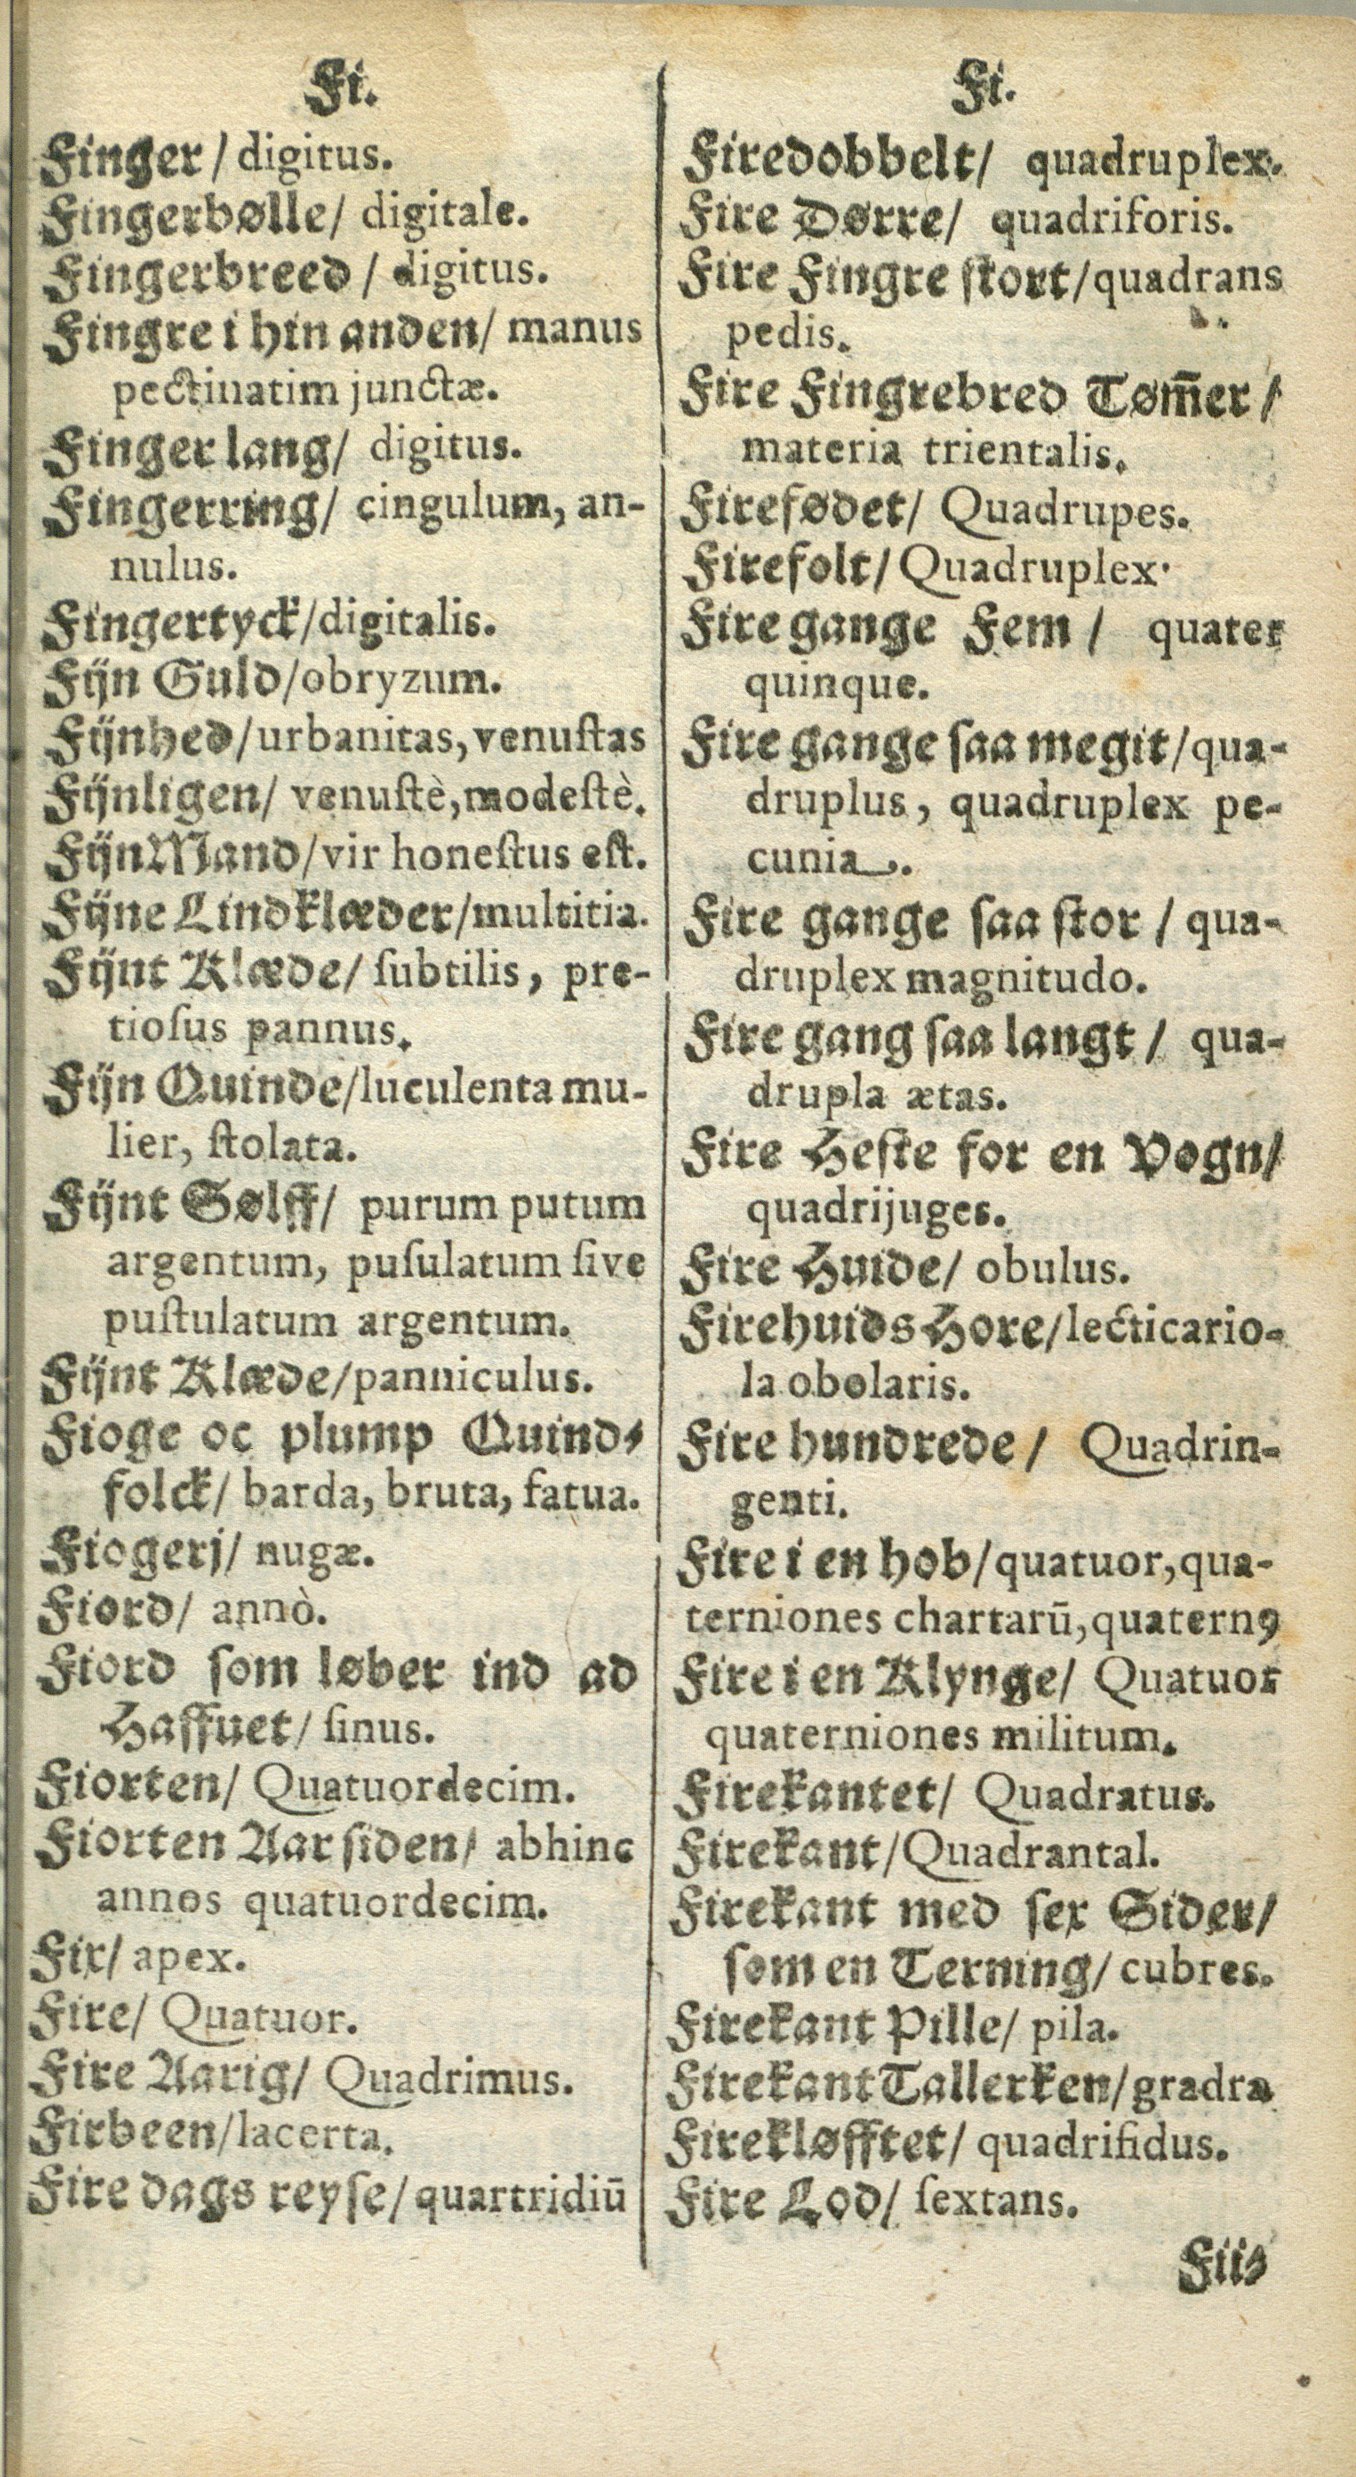 Fi.
Finger/ digitus.
Fingerbølle/ digitale.
Fingerbreed/ digitus.
Fingre i hin anden/ manus
pectinatim junctæ.
Finger lang/ digitus.
Fingerring/ cingulum, an-
nulus.
Fingertyck/digitalis.
Fijn Guld/obryzum.
Fijnhed/urbanitas, venuſtas
Fijnligen/ venuſtè, modeſtè.
Fijn Mand/vir honeſtus eſt.
Fijne Lindklæder/multitia.
Fijnt Klæde/ ſubtilis, pre-
tioſus pannus.
Fijn Quinde/luculenta mu-
lier, ſtolata.
Fijnt Sølff/ purum putum
argentum, puſulatum ſive
puſtulatum argentum.
Fijnt Klæde/panniculus.
Fioge oc plump Quind-
folck/ barda, bruta, fatua.
Fiogerj/ nugæ.
Fiord/ annò.
Fiord ſom løber ind ad
Haffuet/ ſinus.
Fiorten/ Quatuordecim.
Fiorten Aar ſiden/ abhinc
annos quatuordecim.
Fir/ apex.
Fire/ Quatuor.
Fire Aarig/ Quadrimus.
Firbeen/lacerta.
Fire dags reyſe/ quartridiū
Fi.
Firedobbelt/ quadruplex.
Fire Dørre/ quadriforis.
Fire Fingre ſtort/quadrans
pedis.
Fire Fingrebred Tøm̄er/
materia trientalis.
Firefødet/ Quadrupes.
Firefolt/ Quadruplex.
Fire gange Fem/ quater
quinque.
Fire gange ſaa megit/qua-
druplus, quadruplex pe-
cunia.
Fire gange ſaa ſtor/ qua-
druplex magnitudo.
Fire gang ſaa langt/ qua-
drupla ætas.
Fire Heſte for en Vogn/
quadrijuges.
Fire Huide/ obulus.
Firehuids Hore/lecticario-
la obolaris.
Fire hundrede/ Quadrin-
genti.
Fire i en hob/quatuor, qua-
terniones chartarū, quaternꝰ
Fire i en Klynge/ Quatuor
quaterniones militum.
Firekantet/ Quadratus.
Firekant/Quadrantal.
Firekant med ſex Sider/
ſom en Terning/ cubres.
Firekant Pille/ pila.
Firekant Tallerken/gradra
Firekløfftet/ quadrifidus.
Fire Lod/ ſextans.
Fiis